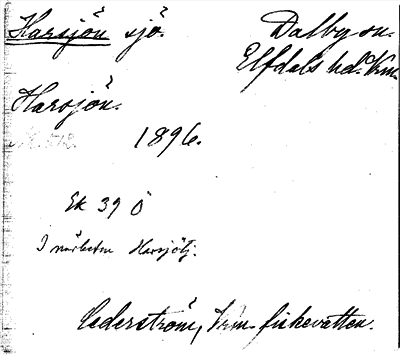 Harsjön sjö.
Dalby sn.
Elfdals hd. Vrm.
Harsjön.
1896.
Ek 39 Ö
I närheten Harsjötj.
Cederström, Vrm. fiskevatten.